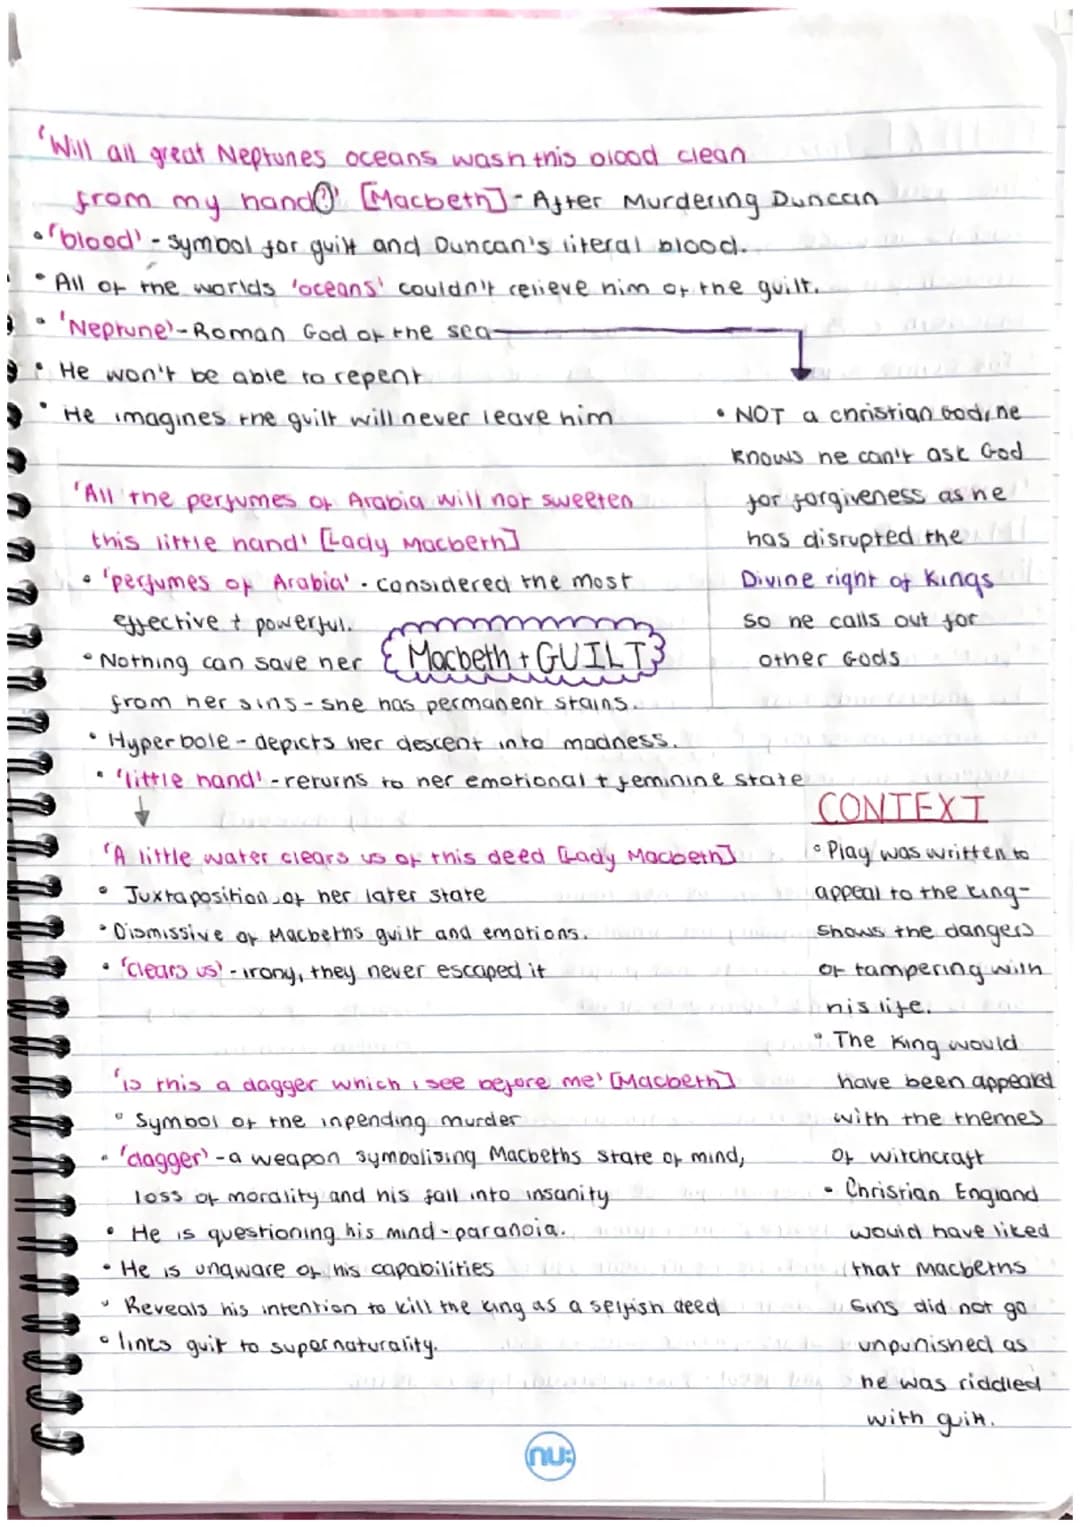 'Will all great Neptunes oceans wash this blood clean
from my hand?' [Macbeth] - After Murdering Duncan
• 'blood' - symbol for guilt and Duncan's literal blood.
• All of the worlds 'oceans' couldn't relieve him of the guilt.
• 'Neptune' - Roman God of the sea
• He won't be able to repent
• He imagines the guilt will never leave him
• NOT a christian God, he
knows he can't ask God
for forgiveness as he
has disrupted the
Divine right of Kings
so he calls out for
other Gods
'All the perfumes of Arabia will not sweeten
this little hand' [Lady Macbeth]
• 'perfumes of Arabia' - considered the most
effective + powerful.
Macbeth + GUILT
• Nothing can save her
from her sins - she has permanent stains.
• Hyperbole - depicts her descent into madness.
• 'little hand' - returns to her emotional + feminine state
'A little water clears us of this deed [Lady Macbeth]
• Juxtaposition of her later state
• Dismissive of Macbeths guilt and emotions.
• 'clears us' - irony, they never escaped it
'is this a dagger which i see before me' [Macbeth]
• Symbol of the inpending murder
• 'dagger' - a weapon symbolising Macbeths state of mind,
loss of morality and his fall into insanity
• He is questioning his mind - paranoia.
• He is unaware of his capabilities
• Reveals his intention to kill the king as a selfish deed
• links guilt to supernaturality.
CONTEXT
• Play was written to
appeal to the king -
shows the dangers
of tampering with
his life.
• The King would
have been appeared
with the themes
of witchcraft
• Christian England
would have liked
that Macbeths
sins did not go
unpunished as
he was riddled
with guilt.
nu: